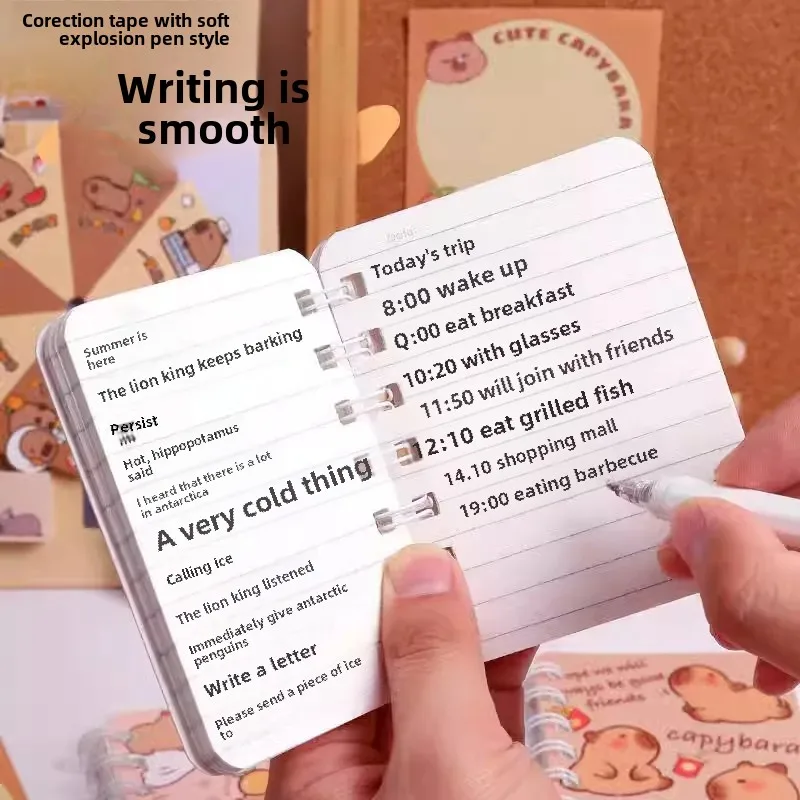 Corection tape with soft
explosion pen style
Writing is
smooth
CUTE CAPYBARA
Summer is
here
The lion king keeps barking
Persist
Hot, hippopotamus
said
I heard that there is a lot
in antarctica
A very cold thing
Calling ice
The lion king listened
Immediately give antarctic
penguins
Write a letter
Please send a piece of ice
to
Today's trip
8:00 wake up
Q:00 eat breakfast
10:20 with glasses
11:50 will join with friends
12:10 eat grilled fish
14.10 shopping mall
19:00 eating barbecue
we will
be good
friends
capybara